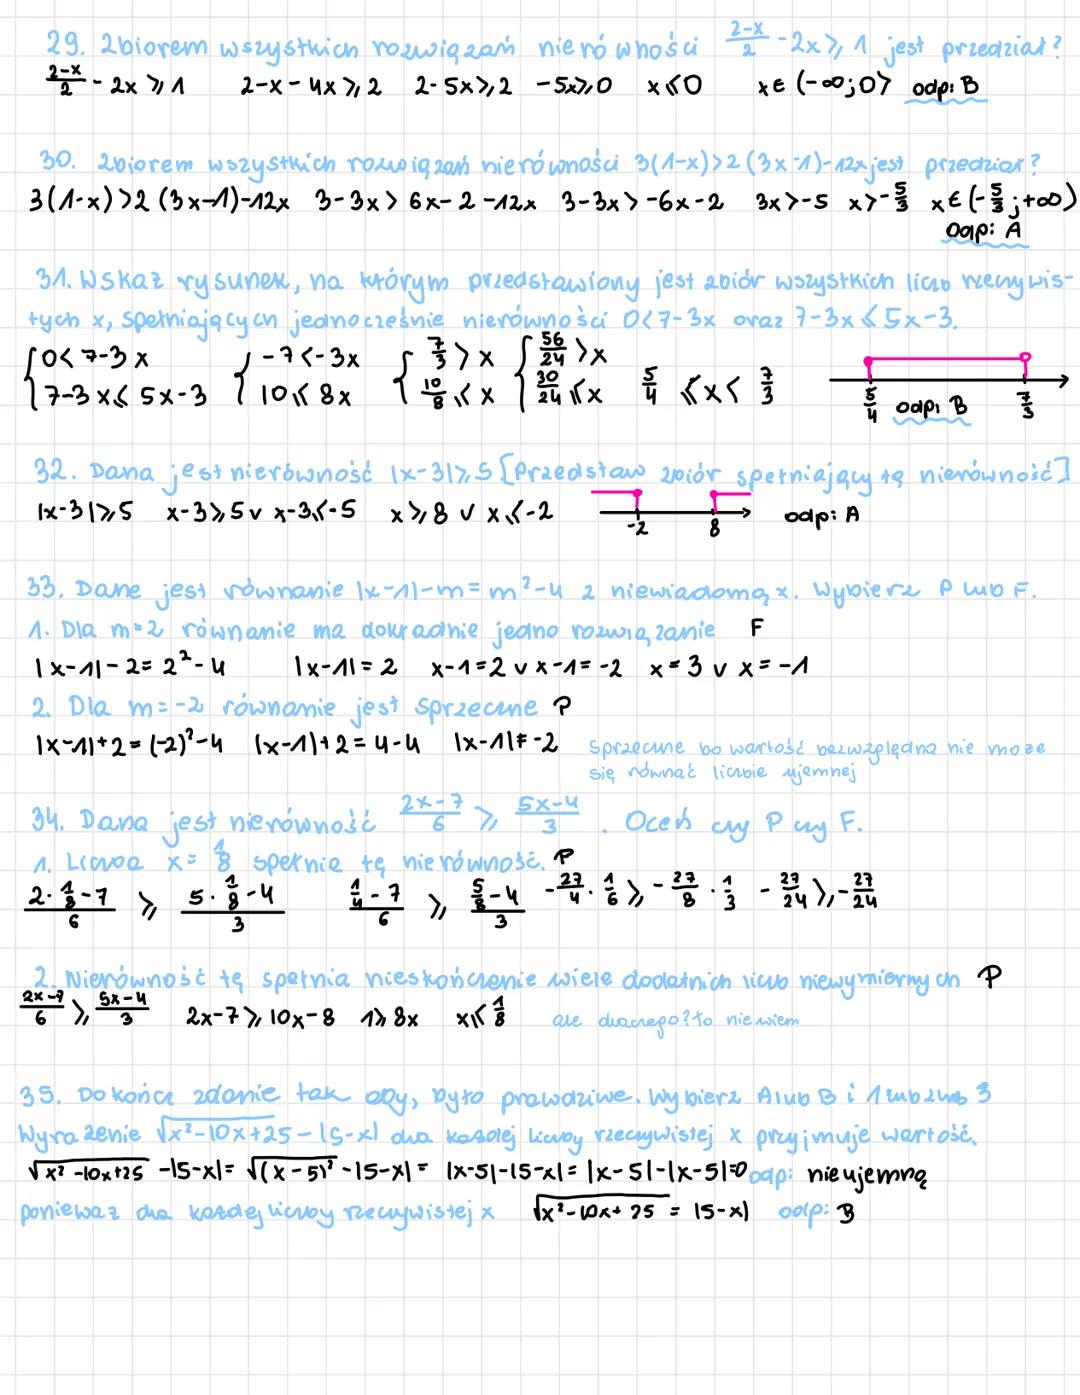 29. Zbiorem wszystkich rozwiązań nierówności (2-x)/2 - 2x ⩾ 1 jest przedział?
(2-x)/2 - 2x ⩾ 1   2-x-4x ⩾ 2   2-5x ⩾ 2   -5x ⩾ 0   x ⩽ 0   x∈(-∞;0⟩ odp: B
30. Zbiorem wszystkich rozwiązań nierówności 3(1-x)>2(3x-1)-12x jest przedział?
3(1-x)>2(3x-1)-12x   3-3x>6x-2-12x   3-3x>-6x-2   3x>-5   x>-5/3   x∈(-5/3;+∞)
odp: A
31. Wskaż rysunek, na którym przedstawiony jest zbiór wszystkich liczb rzeczywis-
tych x, spełniających jednocześnie nierówności 0<7-3x oraz 7-3x⩽5x-3.
{0<7-3x   {-7<-3x   {7/3>x   {56/24>x
{7-3x⩽5x-3   {10⩽8x   {10/8⩽x   {30/24⩽x   5/4⩽x<7/3   5/4 odp: B 7/3
32. Dana jest nierówność |x-3|⩾5 [Przedstaw zbiór spełniający tą nierówność]
|x-3|⩾5   x-3⩾5 v x-3⩽-5   x⩾8 v x⩽-2   -2   8   odp: A
33. Dane jest równanie |x-1|-m=m²-4 z niewiadomą x. Wybierz P lub F.
1. Dla m=2 równanie ma dokładnie jedno rozwiązanie F
|x-1|-2=2²-4   |x-1|=2   x-1=2 v x-1=-2   x=3 v x=-1
2. Dla m=-2 równanie jest sprzeczne P
|x-1|+2=(-2)²-4   |x-1|+2=4-4   |x-1|≠-2   sprzeczne bo wartość bezwzględna nie może
się równać liczbie ujemnej
34. Dana jest nierówność (2x-7)/6 ⩾ (5x-4)/3. Oceń czy P czy F.
1. Liczba x=1/8 spełnia tę nierówność. P
(2·1/8-7)/6 ⩾ (5·1/8-4)/3   (1/4-7)/6 ⩾ (5/8-4)/3   -27/4·1/6 ⩾ -27/8·1/3   -27/24 ⩾ -27/24
2. Nierówność tę spełnia nieskończenie wiele dodatnich liczb niewymiernych P
(2x-7)/6 ⩾ (5x-4)/3   2x-7⩾10x-8   1⩾8x   x⩽1/8   ale dlaczego? to nie wiem
35. Dokończ zdanie tak aby, było prawdziwe. Wybierz A lub B i 1 lub 2 lub 3
Wyrażenie √x²-10x+25 - |5-x| dla każdej liczby rzeczywistej x przyjmuje wartość.
√x²-10x+25 - |5-x| = √(x-5)² - |5-x| = |x-5|-|5-x|=|x-5|-|x-5|=0 odp: nieujemną
ponieważ dla każdej liczby rzeczywistej x   √x²-10x+25 = |5-x|   odp: B